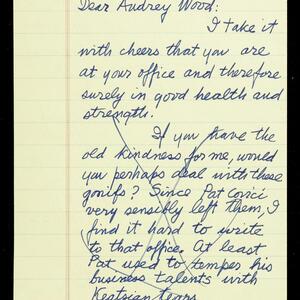 Dear Audrey Wood:
I take it
with cheers that you are
at your office and therefore
surely in good health and
strength.
If you have the
old kindness for me, would
you perhaps deal with these
gonifs? Since Pat Covici
very sensibly left them, I
find it hard to write
to that office. At least
Pat used to temper his
business talents with
Keatsian tears.